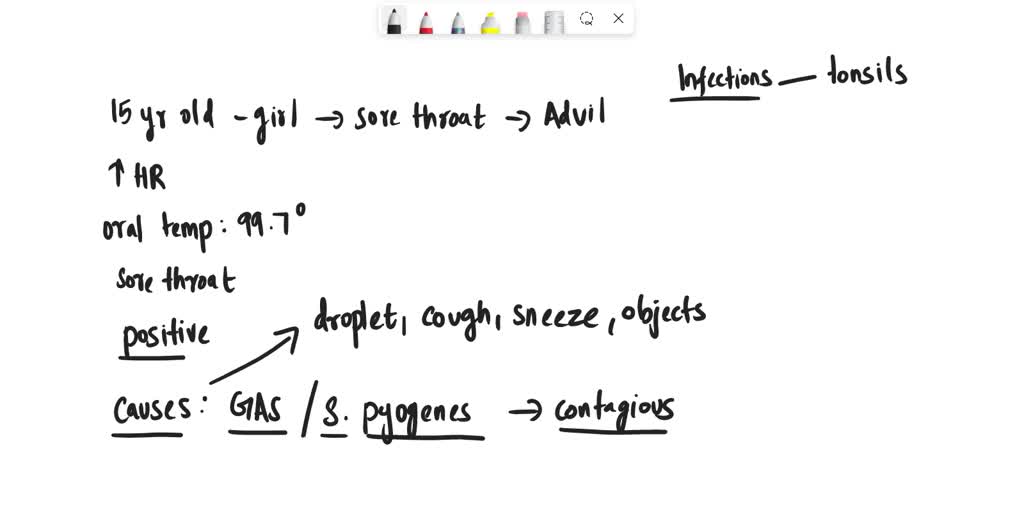 Infections — tonsils
15 yr old - girl → sore throat → Advil
↑ HR
oral temp: 99.7°
sore throat
droplet, cough, sneeze, objects
positive
causes: GAS / S. pyogenes → contagious